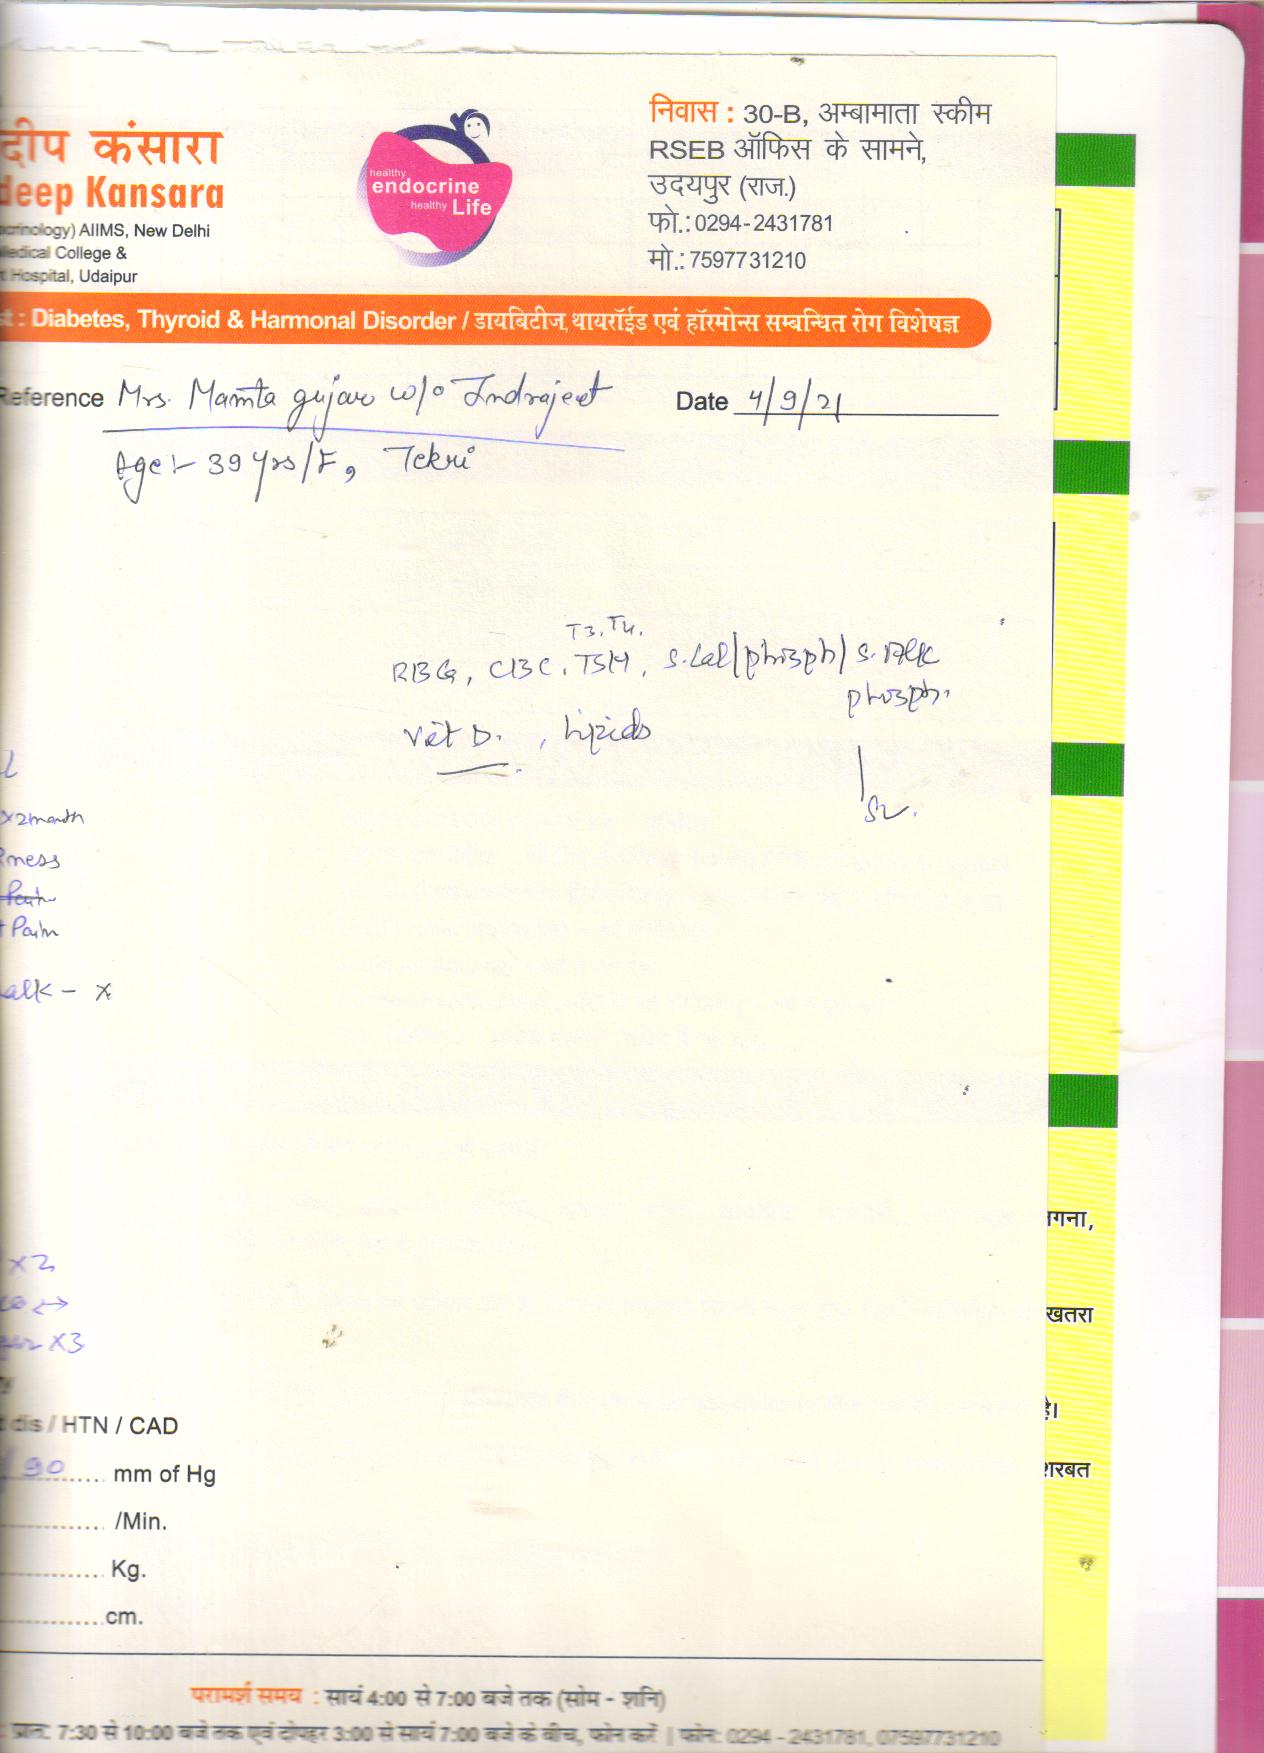 दीप कंसारा
deep Kansara
AIIMS, New Delhi
Medical College &
Hospital, Udaipur
healthy
endocrine
healthy Life
निवास : 30-B, अम्बामाता स्कीम
RSEB ऑफिस के सामने,
उदयपुर (राज.)
फो.: 0294-2431781
मो.: 7597731210
: Diabetes, Thyroid & Harmonal Disorder / डायबिटीज, थायरॉईड एवं हॉरमोन्स सम्बन्धित रोग विशेषज्ञ
Reference Mrs. Mamta gujar w/o Indrajeet Date 4/9/21
Age:- 39 yrs/F, Tekri
T3, T4,
RBG, CBC, TSH, S. Cal/phosph/ S. Alk
phosph.
Vit D. , Lipids
x2month
Pain
Pain
alk - x
x2
x3
dis / HTN / CAD
/ 90 mm of Hg
/Min.
Kg.
cm.
गना,
खतरा
है।
शरबत
परामर्श समय : सायं 4:00 से 7:00 बजे तक (सोम - शनि)
प्रातः 7:30 से 10:00 बजे तक एवं दोपहर 3:00 से सायं 7:00 बजे के बीच, फोन करें | फोन: 0294 - 2431781, 07597731210